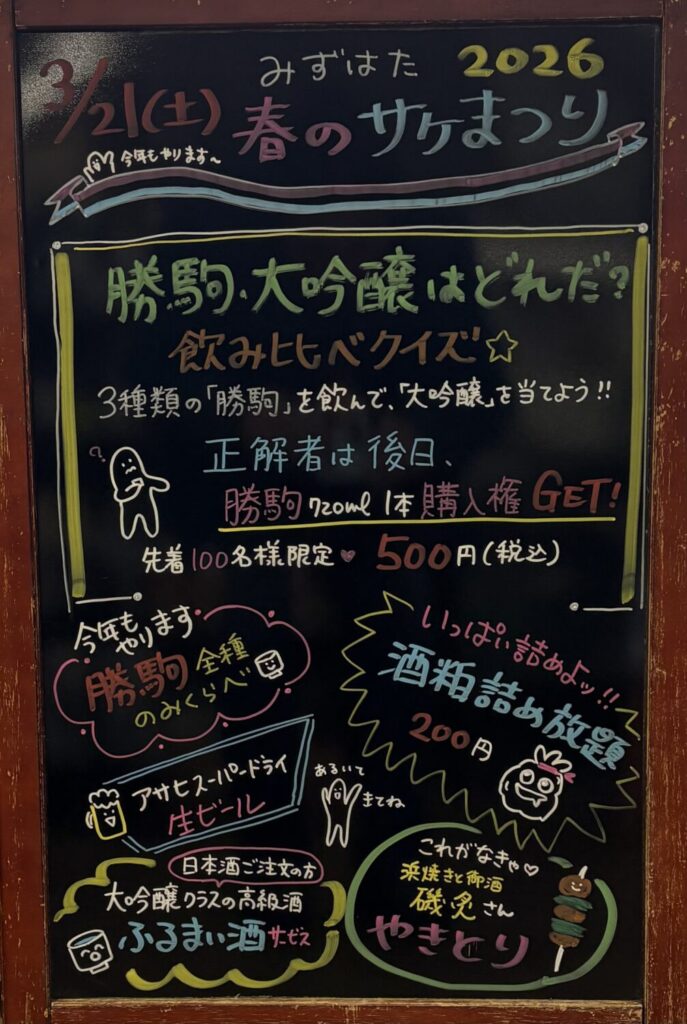 3/21(土)
みずはた
2026
春のサケまつり
今年もやります~
勝駒・大吟醸はどれだ?
飲み比べクイズ☆
3種類の「勝駒」を飲んで、「大吟醸」を当てよう!!
?
正解者は後日、
勝駒720ml 1本購入権GET!
先着100名様限定♥500円(税込)
今年も
やります
勝駒全種
のみくらべ
いっぱい詰めよッ!!
酒粕詰め放題
200円
アサヒスーパードライ
生ビール
あるいて
きてね
日本酒ご注文の方
大吟醸クラスの高級酒
ふるまい酒サービス
これがなきゃ♡
浜焼きと御酒
磯兎さん
やきとり